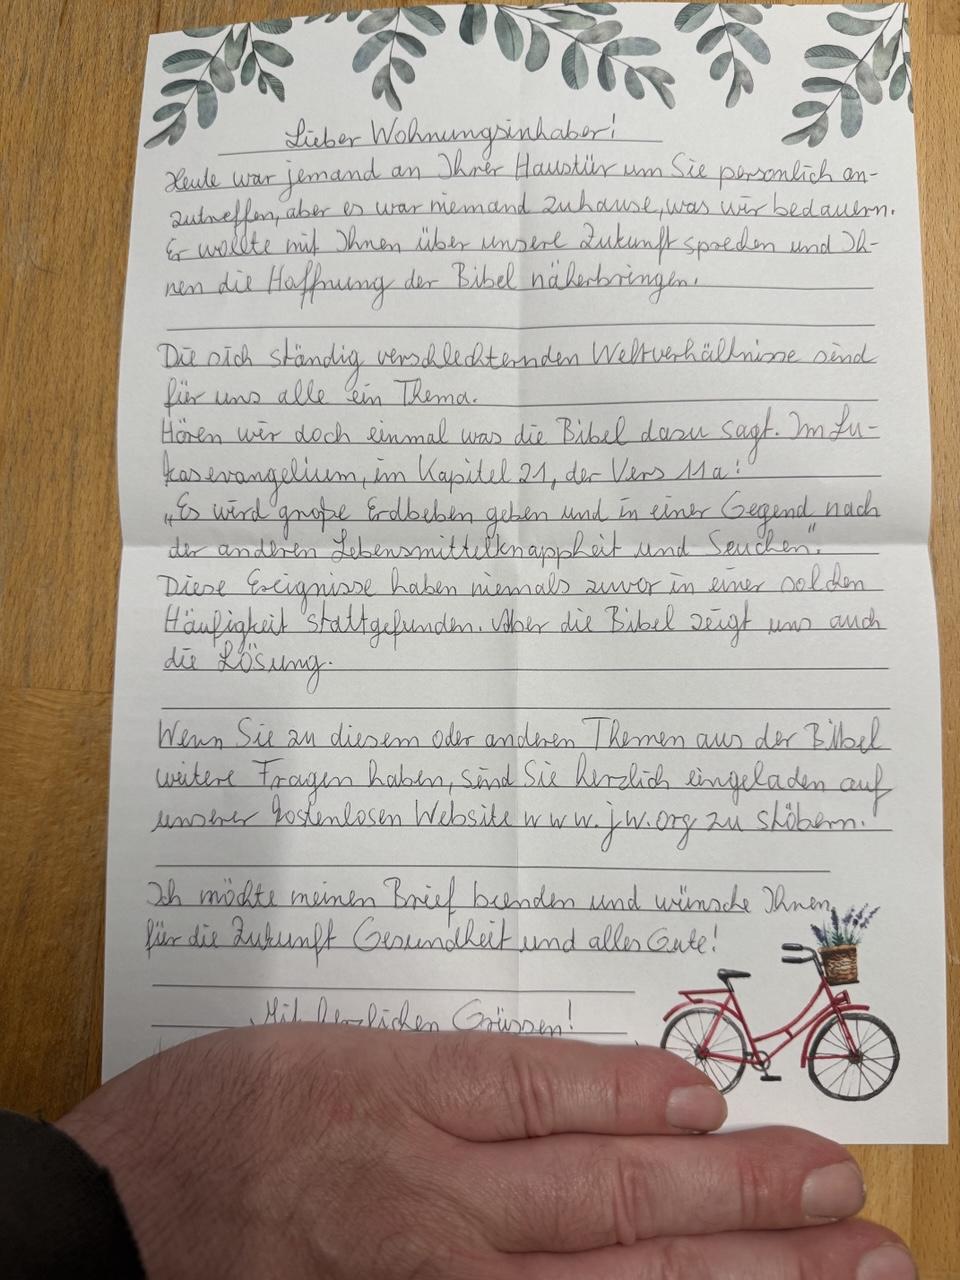 Lieber Wohnungsinhaber!
Heute war jemand an Ihrer Haustür um Sie persönlich an-
zutreffen, aber es war niemand zuhause, was wir bedauern.
Er wollte mit Ihnen über unsere Zukunft sprechen und Ih-
nen die Hoffnung der Bibel näherbringen.
Die sich ständig verschlechternden Weltverhältnisse sind
für uns alle ein Thema.
Hören wir doch einmal was die Bibel dazu sagt. Im Lu-
kasevangelium, im Kapitel 21, der Vers 11a:
„Es wird große Erdbeben geben und in einer Gegend nach
der anderen Lebensmittelknappheit und Seuchen".
Diese Ereignisse haben niemals zuvor in einer solchen
Häufigkeit stattgefunden. Aber die Bibel zeigt uns auch
die Lösung.
Wenn Sie zu diesem oder anderen Themen aus der Bibel
weitere Fragen haben, sind Sie herzlich eingeladen auf
unserer kostenlosen Website www.jw.org zu stöbern.
Ich möchte meinen Brief beenden und wünsche Ihnen
für die Zukunft Gesundheit und alles Gute!
Mit herzlichen Grüssen!